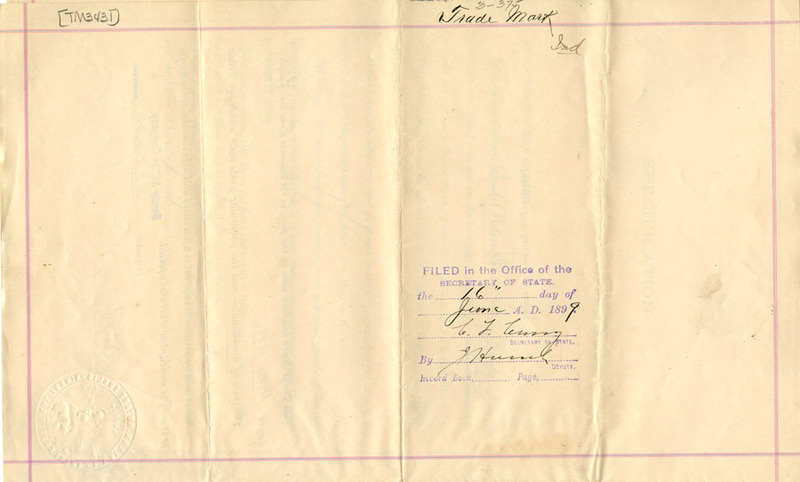 [TM3431]
3-375
Trade Mark
Ind
FILED in the Office of the
SECRETARY OF STATE.
the 16" day of
June A. D. 1899.
C. F. Curry
SECRETARY OF STATE.
By J Hoesch
DEPUTY.
Record Book, Page,